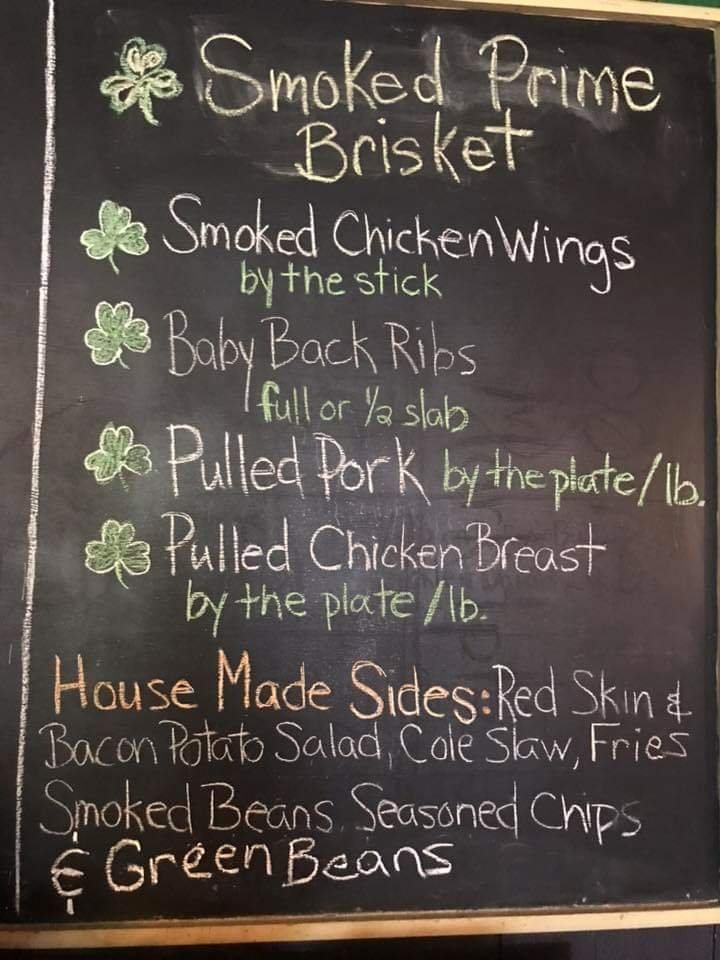 Smoked Prime
Brisket
Smoked Chicken Wings
by the stick
Baby Back Ribs
full or 1/2 slab
Pulled Pork by the plate/lb.
Pulled Chicken Breast
by the plate/lb.
House Made Sides: Red Skin &
Bacon Potato Salad, Cole Slaw, Fries
Smoked Beans, Seasoned Chips
& Green Beans